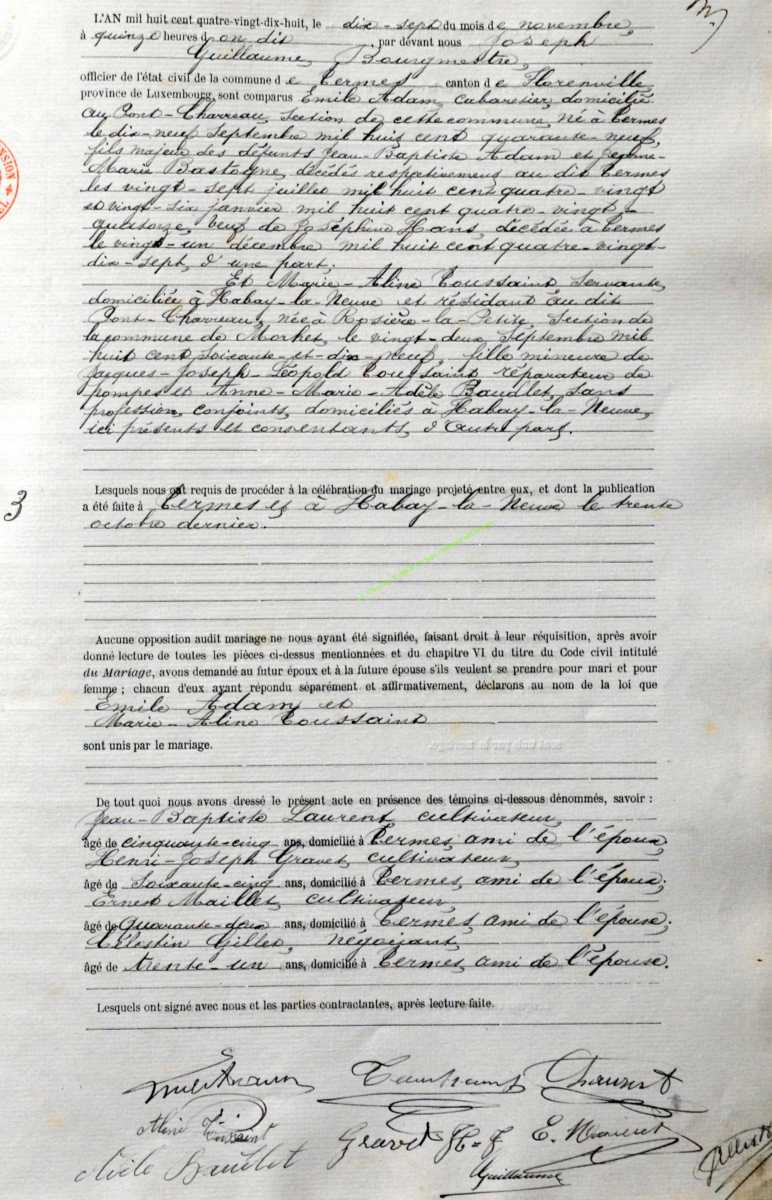 L'AN mil huit cent quatre-vingt-dix-huit, le dix-sept du mois de novembre,
à quinze heures du dit, par devant nous Joseph
Guillaume, Bourgmestre,
officier de l'état civil de la commune de Termes canton de Florenville,
province de Luxembourg, sont comparus Emile Adam, cabaretier, domicilié
au Pont-Charreau, section de cette commune, né à Termes
le dix-neuf Septembre mil huit cent quarante-neuf,
fils majeur des défunts Jean-Baptiste Adam et Jeanne-
Marie Bastogne, décédés respectivement au dit Termes
les vingt-sept juillet mil huit cent quatre-vingt
et vingt-six janvier mil huit cent quatre-vingt-
quatorze, veuf de Joséphine Hans, décédée à Termes
le vingt-un décembre mil huit cent quatre-vingt-
dix-sept, d'une part,
Et Marie-Aline Toussaint, Servante,
domiciliée à Habay-la-Neuve et résidant au dit
Pont-Charreau, née à Rosière-la-Petite, Section de
la commune de Morhet, le vingt-deux Septembre mil
huit cent soixante-et-dix-neuf, fille mineure de
Jacques-Joseph-Léopold Toussaint, réparateur de
pompes et Anne-Marie-Adèle Baudlet, sans
profession, conjoints, domiciliés à Habay-la-Neuve,
ici présents et consentants, d'autre part.
Lesquels nous ont requis de procéder à la célébration du mariage projeté entre eux, et dont la publication
a été faite à Termes et à Habay-la-Neuve le trente
octobre dernier.
3
Aucune opposition audit mariage ne nous ayant été signifiée, faisant droit à leur réquisition, après avoir
donné lecture de toutes les pièces ci-dessus mentionnées et du chapitre VI du titre du Code civil intitulé
du Mariage, avons demandé au futur époux et à la future épouse s'ils veulent se prendre pour mari et pour
femme ; chacun d'eux ayant répondu séparément et affirmativement, déclarons au nom de la loi que
Emile Adam et
Marie-Aline Toussaint
sont unis par le mariage.
De tout quoi nous avons dressé le présent acte en présence des témoins ci-dessous dénommés, savoir :
Jean-Baptiste Laurent, cultivateur,
âgé de cinquante-cinq ans, domicilié à Termes, ami de l'époux,
Henri-Joseph Gravet, cultivateur,
âgé de Soixante-cinq ans, domicilié à Termes, ami de l'époux;
Ernest Maillet, cultivateur,
âgé de quarante-deux ans, domicilié à Termes, ami de l'épouse;
Célestin Gillet, négociant,
âgé de trente-un ans, domicilié à Termes, ami de l'épouse.
Lesquels ont signé avec nous et les parties contractantes, après lecture faite.
Toussaint
Aline Toussaint Gravet H-J
Guillaume